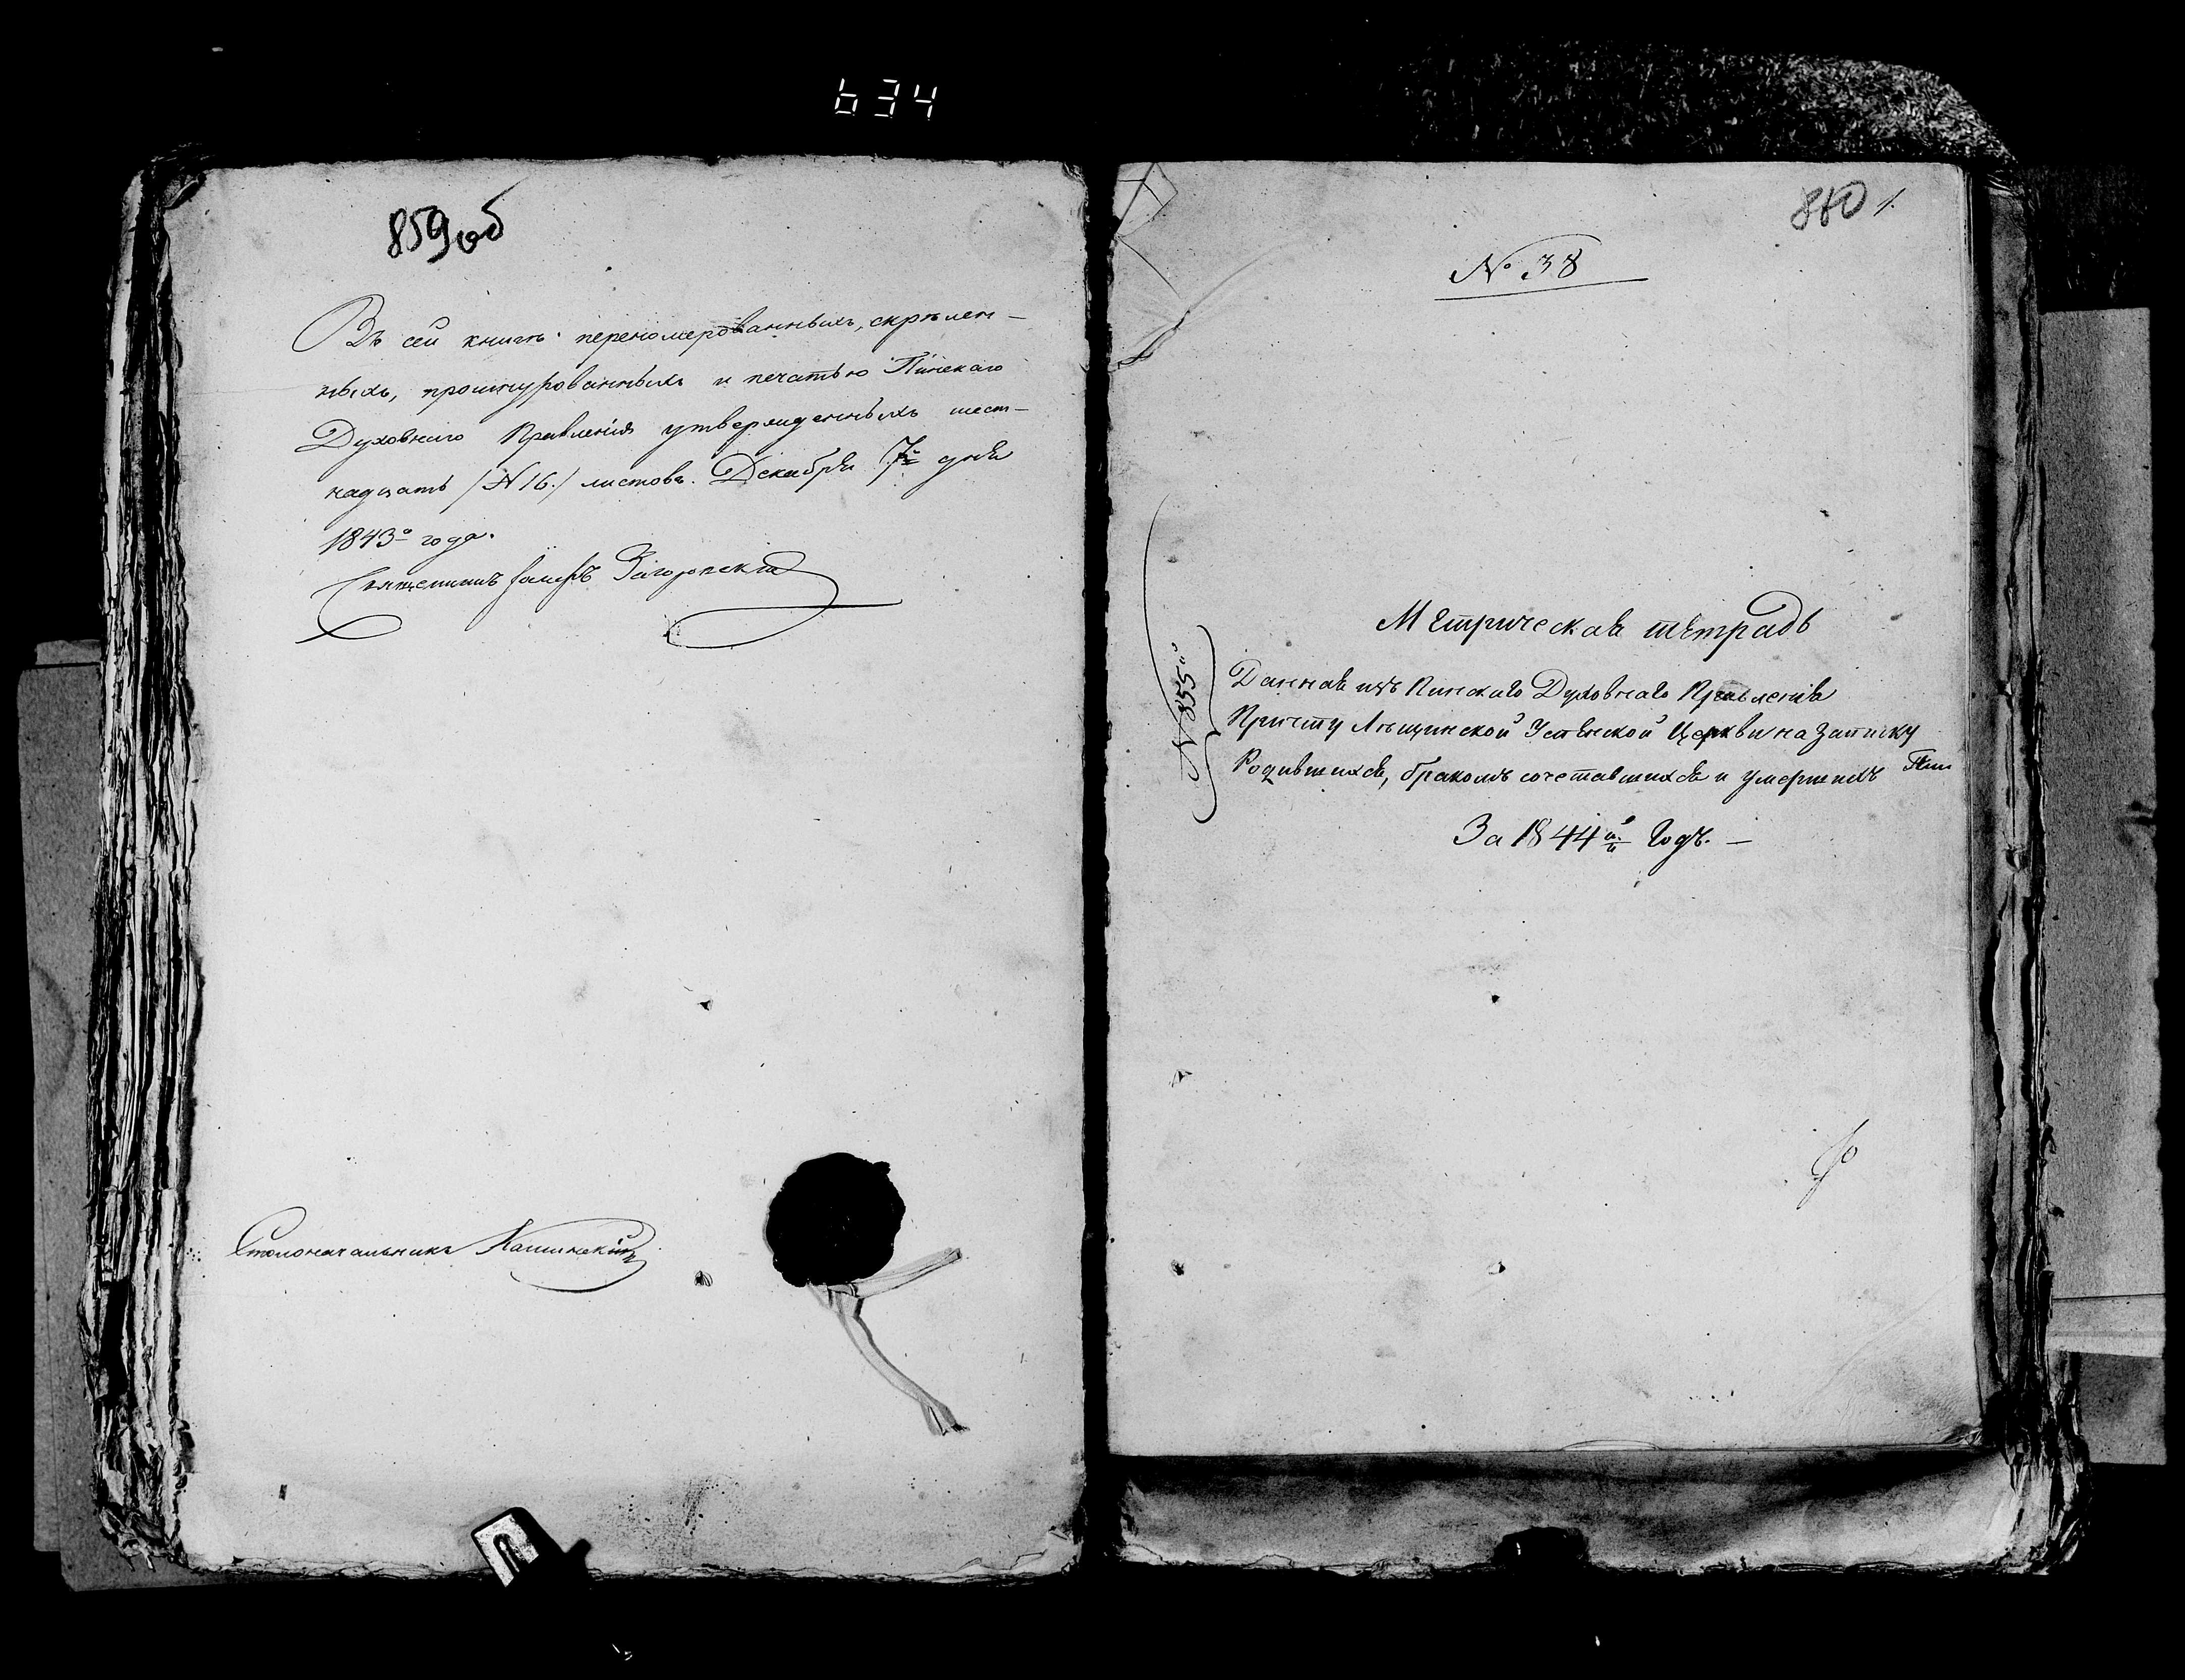 634
859об
Въ сей книгѣ переномерованныхъ, скрѣплен-
ныхъ, прошнурованныхъ и печатью Пинскаго
Духовнаго Правленія утвержденныхъ шест-
надцать / N 16. / листовъ. Декабря 7го дня
1843го года.
Священникъ Загоровскій
Столоначальникъ
860 1.
№ 38
N 855
Метрическая тетрадь
Данная изъ Пинскаго Духовнаго Правленія
Причту Лѣщинской Успенской Церкви на записку
Родившихся, бракомъ сочетавшихся и умершихъ
За 1844й Годъ. —